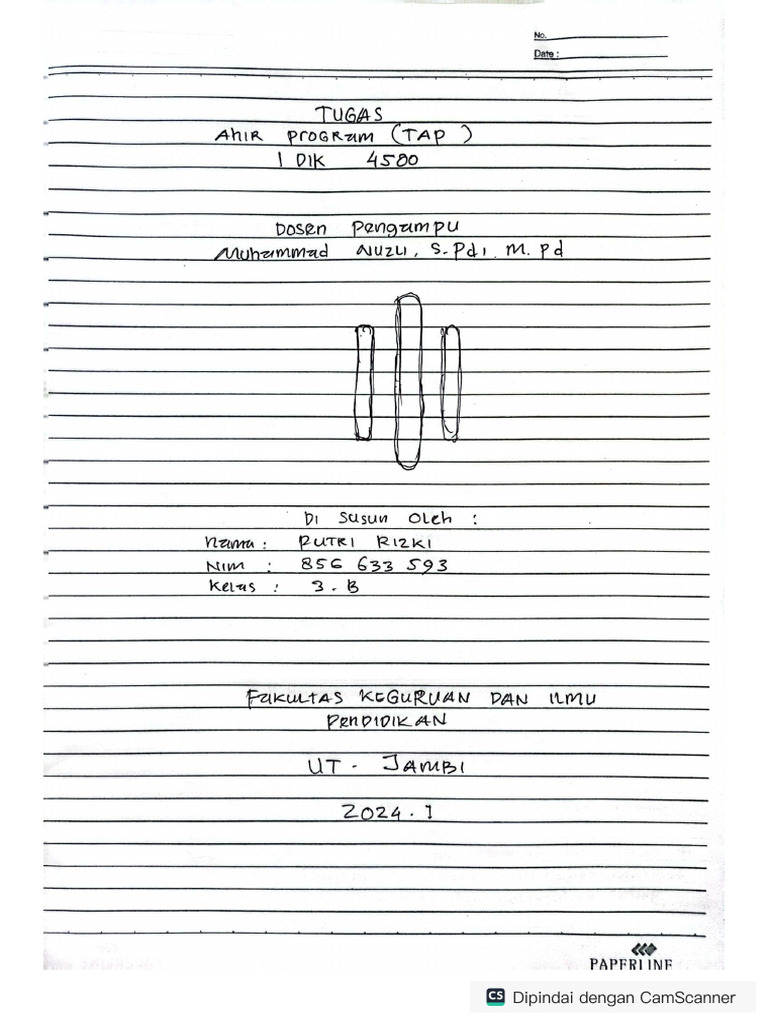 No.
Date :
TUGAS
Ahir Program (TAP )
IDIK 4500
Dosen Pengampu
Muhammad Nuzli, S.Pdi, M.Pd
Di Susun Oleh :
Nama : PUTRI RIZKI
NIM : 856 633 593
Kelas : 3.B
FAKULTAS KEGURUAN DAN ILMU
PENDIDIKAN
UT - JAMBI
2024.1
PAPERLINE
CS Dipindai dengan CamScanner